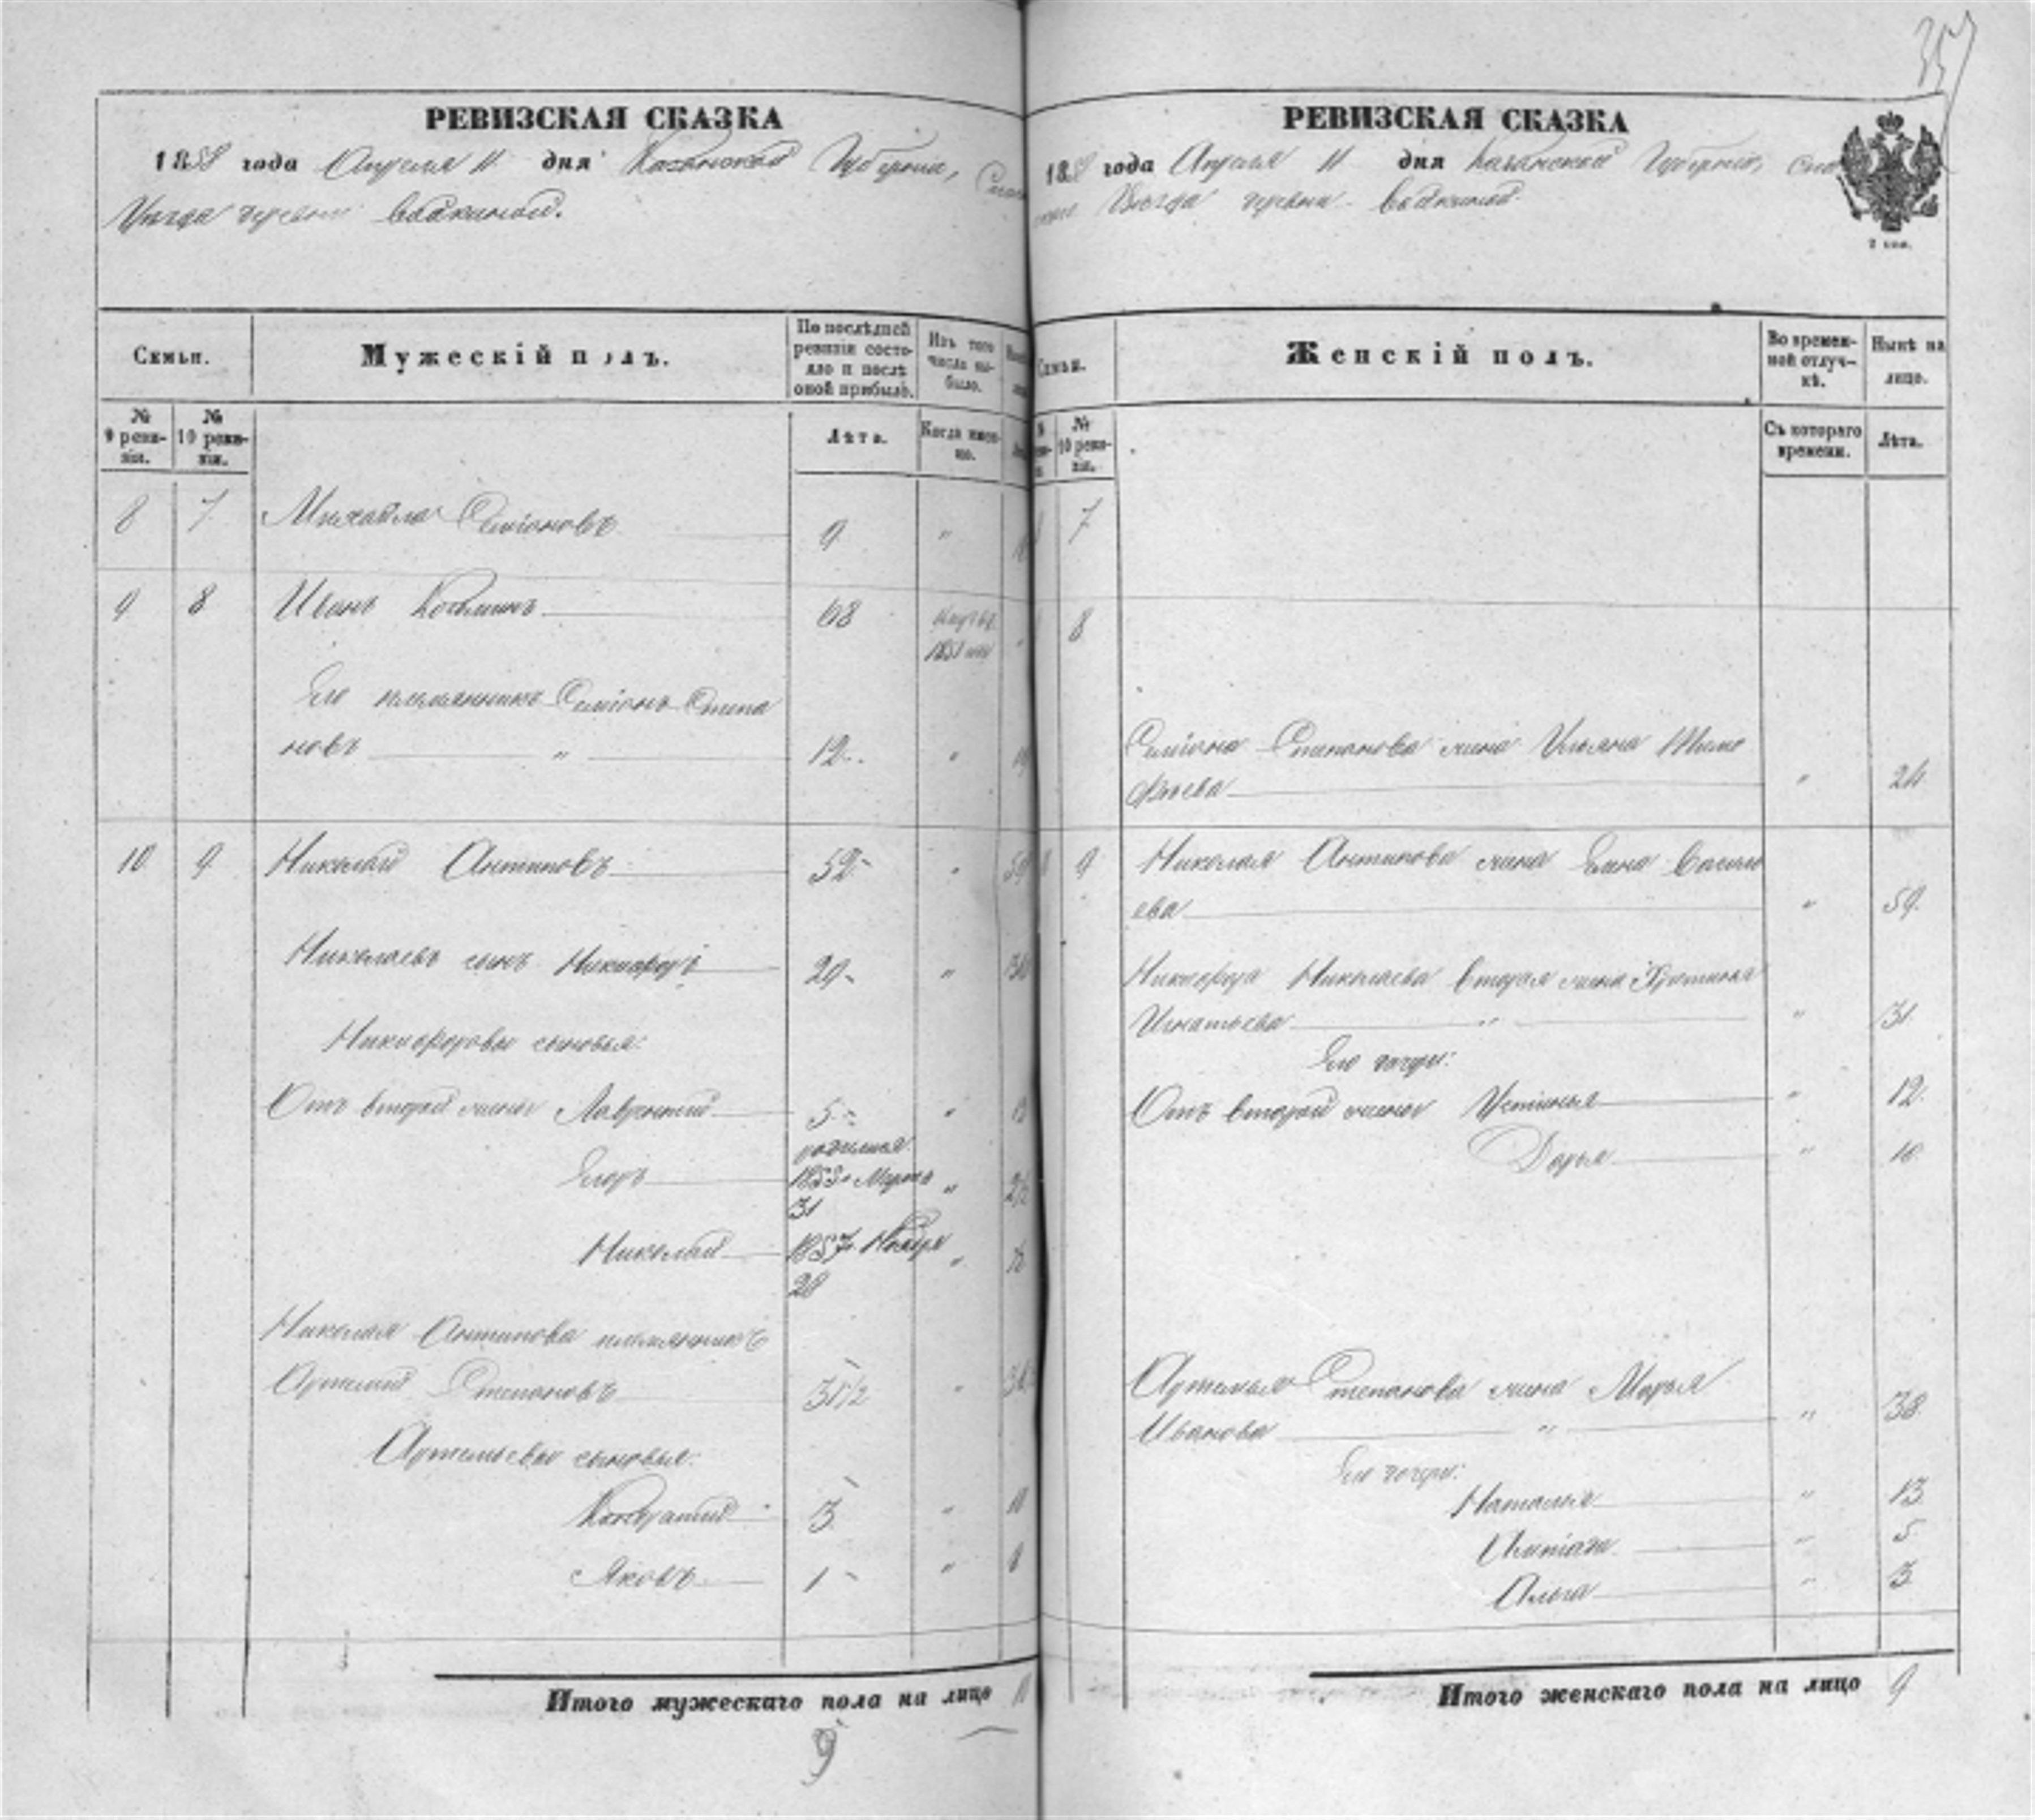 35
РЕВИЗСКАЯ СКАЗКА
1858 года Апреля 11 дня Казанской Губернии, Спас
Уезда деревни Водкиной.
Семьи.
Мужескій полъ.
По послѣдней ревизіи состояло и послѣ оной прибыло.
Изъ того числа выбыло.
№ 9 ревизіи.
№ 10 ревизіи.
Лѣта.
Когда именно.
8 7 Михайла Семіоновъ 9 "
9 8 Иванъ Козминъ 68
Его племянникъ Семіонъ Степа
новъ " 12 "
10 9 Николай Антиповъ 52 "
Николаевъ сынъ Никифоръ 20 "
Никифоровы сыновья:
Отъ второй жены Лаврентий 5 "
родился
Егоръ 1855 Марта "
31
Николай 1857 Ноября "
28
Николая Антипова племянникъ
Артемий Степановъ 31½ "
Артемьевы сыновья:
Кондратий 3 " 11
Яковъ 1 " 8
Итого мужескаго пола на лицо 11
9
РЕВИЗСКАЯ СКАЗКА
1858 года Апреля 11 дня Казанской Губернии, Спа
Уезда деревни Водкиной
2 коп.
Семьи.
Женскій полъ.
Во временной отлучкѣ.
Нынѣ на лицо.
№ 10 ревизіи.
Съ котораго времени.
Лѣта.
7
8
Семіона Степанова жена Ульяна Тимо
фѣева " 24
9 Николая Антипова жена Елена Василь
ева " 59.
Никифора Николаева вторая жена
Игнатьева " " 31
Его дочери:
Отъ второй жены Устинья " 12.
Дарья " 10
Артемья Степанова жена Марья
Иванова " " 38.
Его дочери:
Наталья " 13
" 5
Ольга " 3
Итого женскаго пола на лицо 9